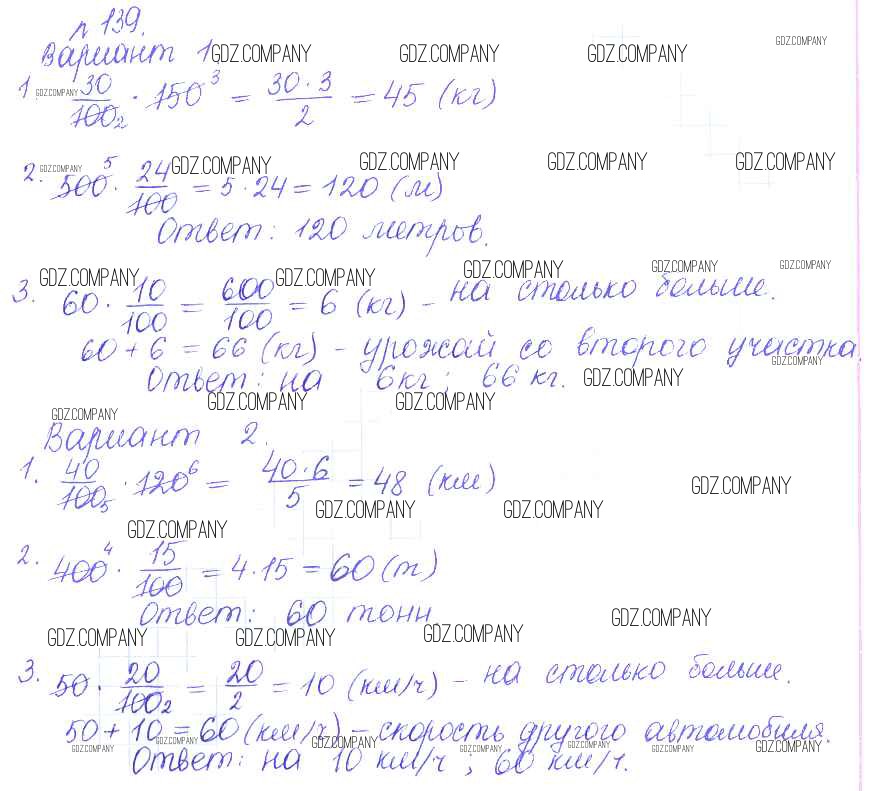 п 139.
Вариант 1 GDZ.COMPANY GDZ.COMPANY GDZ.COMPANY GDZ.COMPANY
1. GDZ.COMPANY 30/100 2 · 150 3 = 30·3/2 = 45 (кг)
2. GDZ.COMPANY 500 5 · 24/100 = 5·24 = 120 (м) GDZ.COMPANY GDZ.COMPANY GDZ.COMPANY GDZ.COMPANY
Ответ: 120 метров.
GDZ.COMPANY GDZ.COMPANY GDZ.COMPANY GDZ.COMPANY GDZ.COMPANY
3. 60 · 10/100 = 600/100 = 6 (кг) – на столько больше.
60 + 6 = 66 (кг) – урожай со второго участка.
GDZ.COMPANY
Ответ: на 6кг; 66 кг. GDZ.COMPANY
GDZ.COMPANY GDZ.COMPANY GDZ.COMPANY
Вариант 2.
1. 40/100 5 · 120 6 = 40·6/5 = 48 (км) GDZ.COMPANY
GDZ.COMPANY GDZ.COMPANY GDZ.COMPANY
2. 400 4 · 15/100 = 4·15 = 60 (т)
Ответ: 60 тонн. GDZ.COMPANY
GDZ.COMPANY GDZ.COMPANY GDZ.COMPANY
3. 50 · 20/100 2 = 20/2 = 10 (км/ч) – на столько больше.
50 + 10 = 60 (км/ч) – скорость другого автомобиля.
GDZ.COMPANY GDZ.COMPANY GDZ.COMPANY GDZ.COMPANY GDZ.COMPANY GDZ.COMPANY GDZ.COMPANY
Ответ: на 10 км/ч; 60 км/ч.